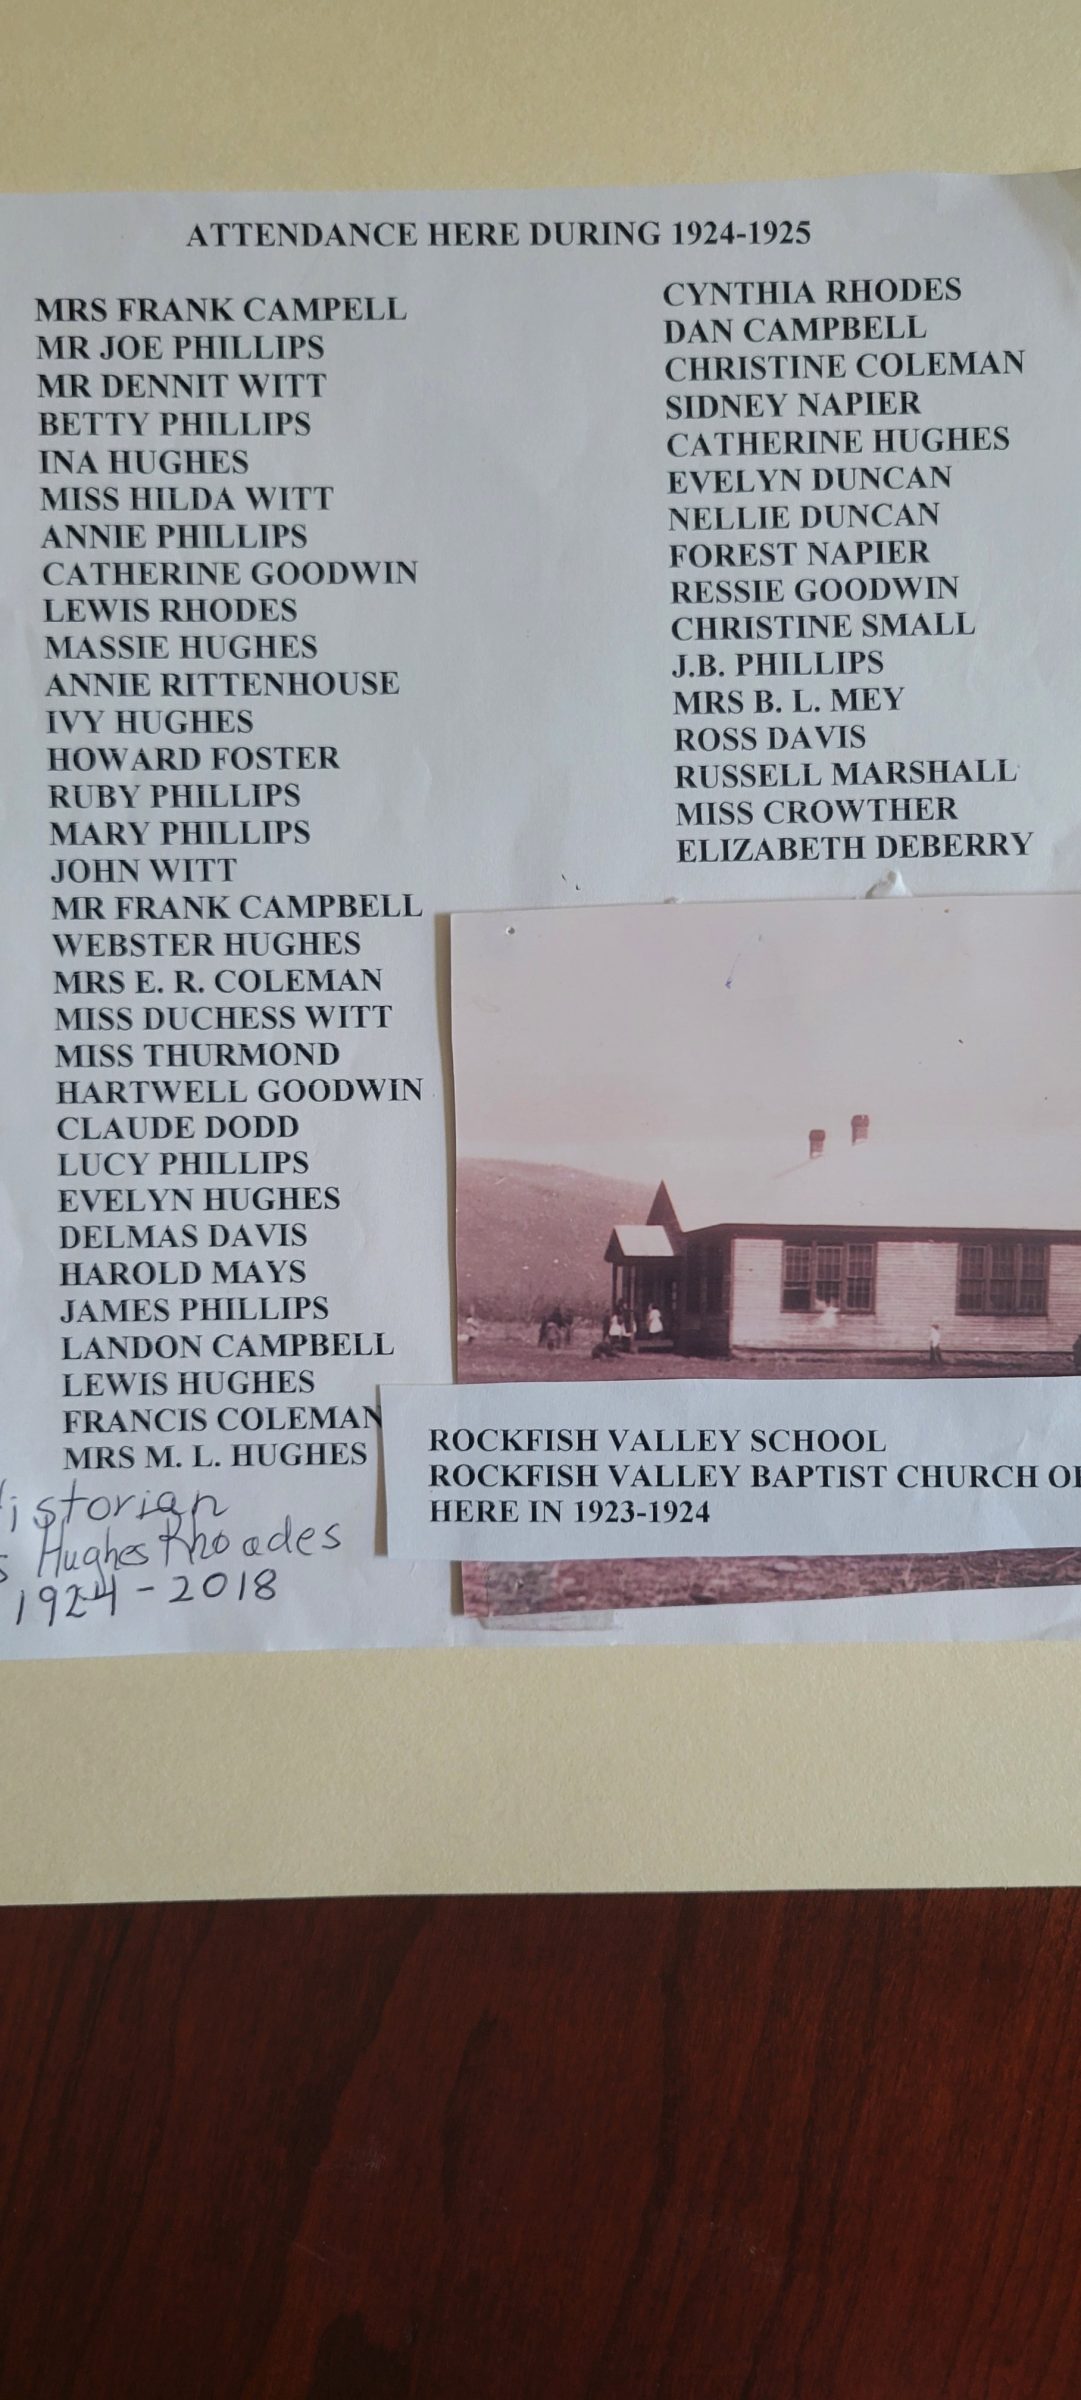 ATTENDANCE HERE DURING 1924-1925
MRS FRANK CAMPELL
MR JOE PHILLIPS
MR DENNIT WITT
BETTY PHILLIPS
INA HUGHES
MISS HILDA WITT
ANNIE PHILLIPS
CATHERINE GOODWIN
LEWIS RHODES
MASSIE HUGHES
ANNIE RITTENHOUSE
IVY HUGHES
HOWARD FOSTER
RUBY PHILLIPS
MARY PHILLIPS
JOHN WITT
MR FRANK CAMPBELL
WEBSTER HUGHES
MRS E. R. COLEMAN
MISS DUCHESS WITT
MISS THURMOND
HARTWELL GOODWIN
CLAUDE DODD
LUCY PHILLIPS
EVELYN HUGHES
DELMAS DAVIS
HAROLD MAYS
JAMES PHILLIPS
LANDON CAMPBELL
LEWIS HUGHES
FRANCIS COLEMAN
MRS M. L. HUGHES
CYNTHIA RHODES
DAN CAMPBELL
CHRISTINE COLEMAN
SIDNEY NAPIER
CATHERINE HUGHES
EVELYN DUNCAN
NELLIE DUNCAN
FOREST NAPIER
RESSIE GOODWIN
CHRISTINE SMALL
J.B. PHILLIPS
MRS B. L. MEY
ROSS DAVIS
RUSSELL MARSHALL
MISS CROWTHER
ELIZABETH DEBERRY
ROCKFISH VALLEY SCHOOL
ROCKFISH VALLEY BAPTIST CHURCH
HERE IN 1923-1924
Historian
Hughes Rhoades
1924-2018